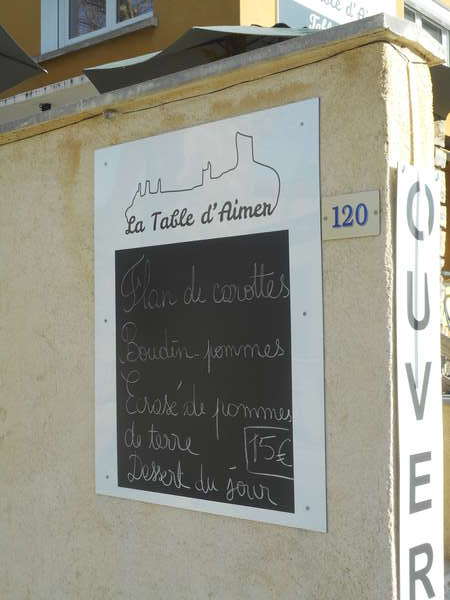 La Table d'Aimer
120
Flan de carottes
Boudin-pommes
Ecrasé de pommes
de terre
15€
Dessert du jour
OUVER